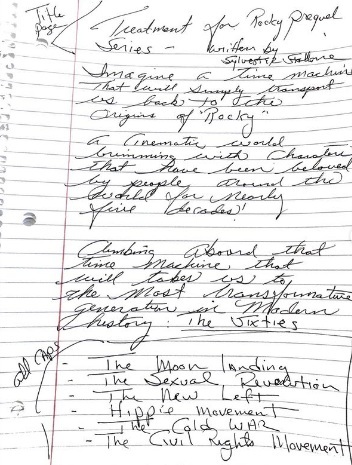 Title
page
Treatment for Rocky Prequel
Series - written by
Sylvester Stallone
Imagine a time machine
that will simply transport
us back to the
origins of "Rocky"
a Cinematic world
brimming with Characters
that have been beloved
by people around the
World for nearly
five Decades!
Climbing Aboard that
time Machine, that
will takes us to
the Most transformative
generation in Modern
history: The Sixties
add caps
- The Moon landing
- The Sexual Revolution
- The New Left
- Hippie Movement
- The Cold WAR
- The Civil Rights Movement